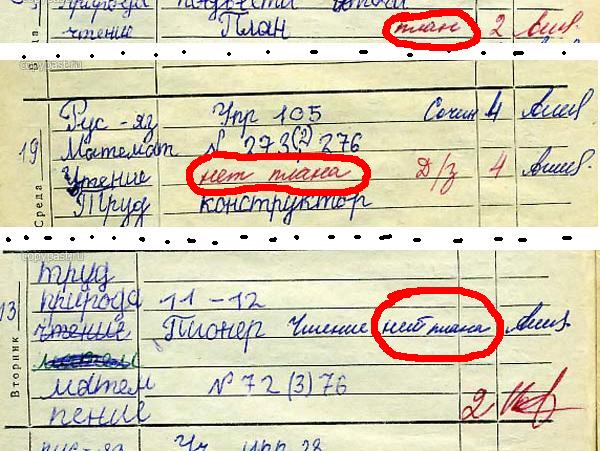 чтение План план 2
copypast.ru
Рус-яз Упр 105 Сочин 4
19 Математ № 273(2) 276
Чтение нет плана Д/з 4
Среда
Труд конструктор
copypast.ru
труд
природа 11-12
13 чтение Пионер Чтение нет плана
Вторник
матем № 72(3) 76
пение 2
рус-яз Уч упр 28